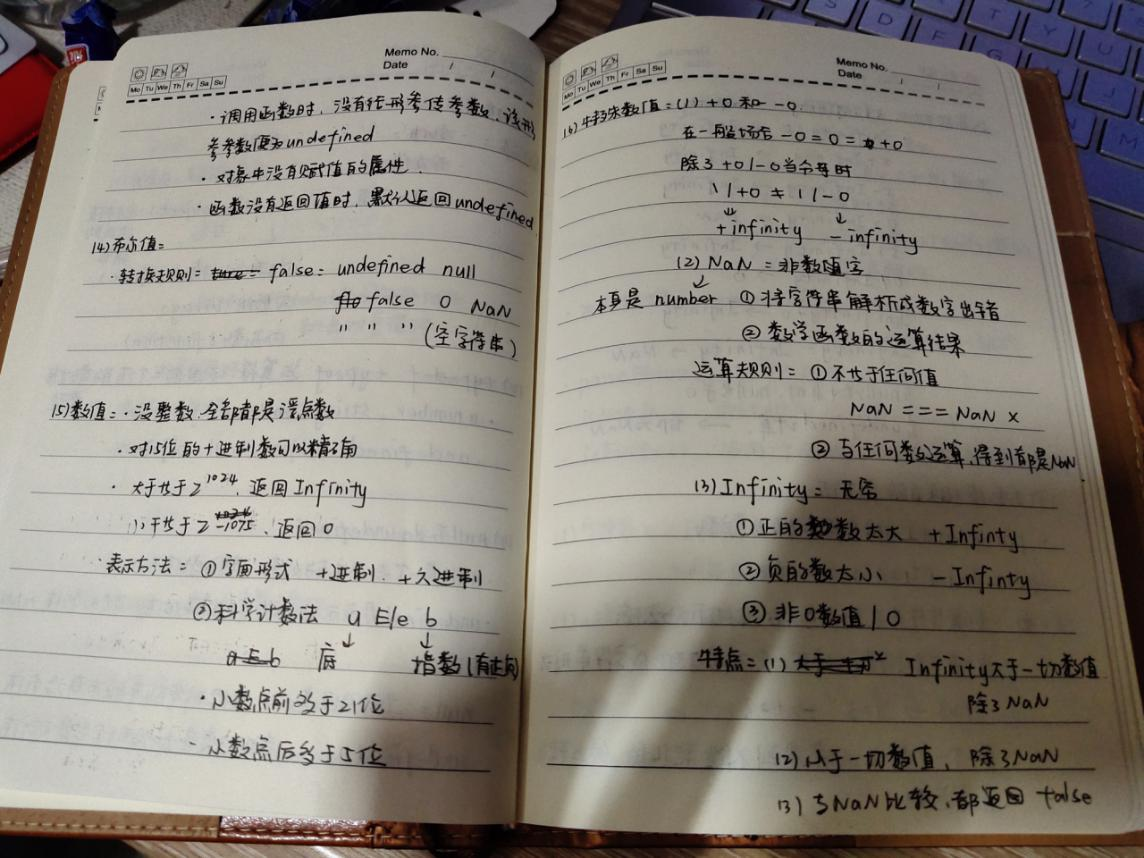 Memo No.
Date / /
Mo Tu We Th Fr Sa Su
·调用函数时，没有给形参传参数，该形
参参数便为undefined
·对象中没有赋值的属性．
·函数没有返回值时，默认返回undefined
(4)布尔值：
·转换规则： false： undefined null
false 0 NaN
" " " "（空字符串）
(5)数值：·没整数，全部都是浮点数
·对15位的十进制数可以精确
·大于等于2^1024，返回Infinity
小于等于2^-1075，返回0
·表示方法：①字面形式 十进制．十六进制
②科学计数法 a E/e b
↓ ↓
a E b 底 指数(有正负)
·小数点前多于21位
·小数点后多于5位
Memo No.
Date / /
Mo Tu We Th Fr Sa Su
(6)特殊数值：(1) +0 和 -0
在一般场合 -0 = 0 = +0
除了 +0/-0当分母时
1/+0 ≠ 1/-0
↓ ↓
+infinity -infinity
(2) NaN：非数值字
本身是 number ①将字符串解析成数字出错
②数学函数的运算结果
运算规则：①不等于任何值
NaN === NaN ×
②与任何数的运算，得到都是NaN
(3) Infinity：无穷
①正的数太大 +Infinty
②负的数太小 -Infinty
③非0数值/0
特点：(1) Infinity大于一切数值
除了NaN
(2)小于一切数值，除了NaN
(3)与NaN比较，都返回 false